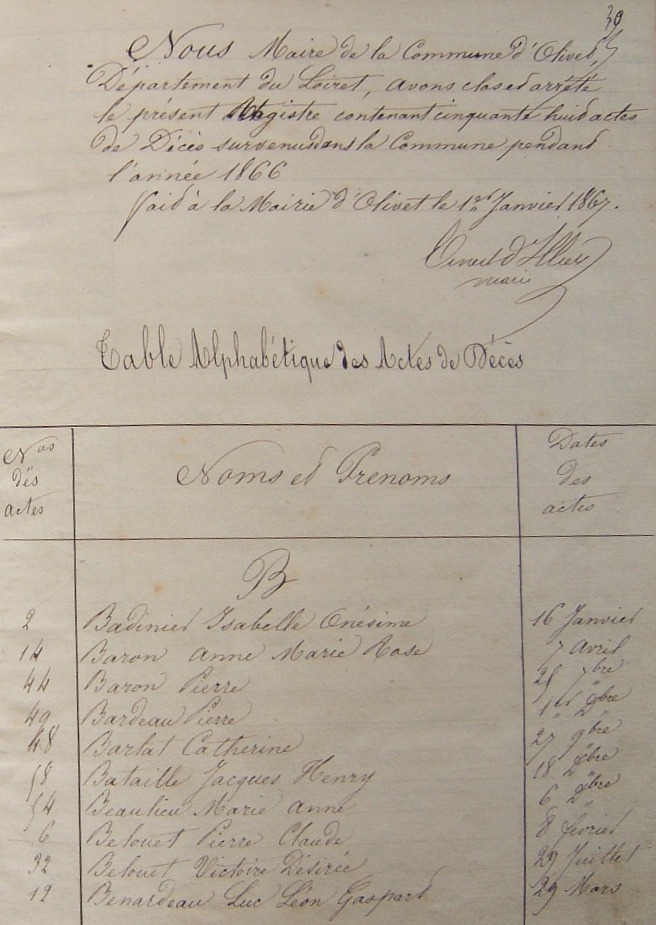 30
Nous Maire de la Commune d'Olivet,
Département du Loiret, avons clos et arrêté
le présent Registre contenant cinquante huit actes
de Décès survenus dans la Commune pendant
l'année 1866
Fait à la Mairie d'Olivet le 1er Janvier 1867.
maire
Table Alphabétique des Actes de Décès
Nos des actes Noms et Prenoms Dates des actes
B
2 Badinier Isabelle Onésime 16 Janvier
14 Baron Anne Marie Rose 7 Avril
44 Baron Pierre 25 7bre
49 Bardeau Pierre 1er Xbre
48 Barlat Catherine 27 9bre
58 Bataille Jacques Henry 18 Xbre
54 Beaulieu Marie Anne 6 Xbre
6 Belouet Pierre Claude 8 février
32 Belouet Victoire Désirée 29 Juillet
12 Benardeau Luc Léon Gaspard 29 Mars